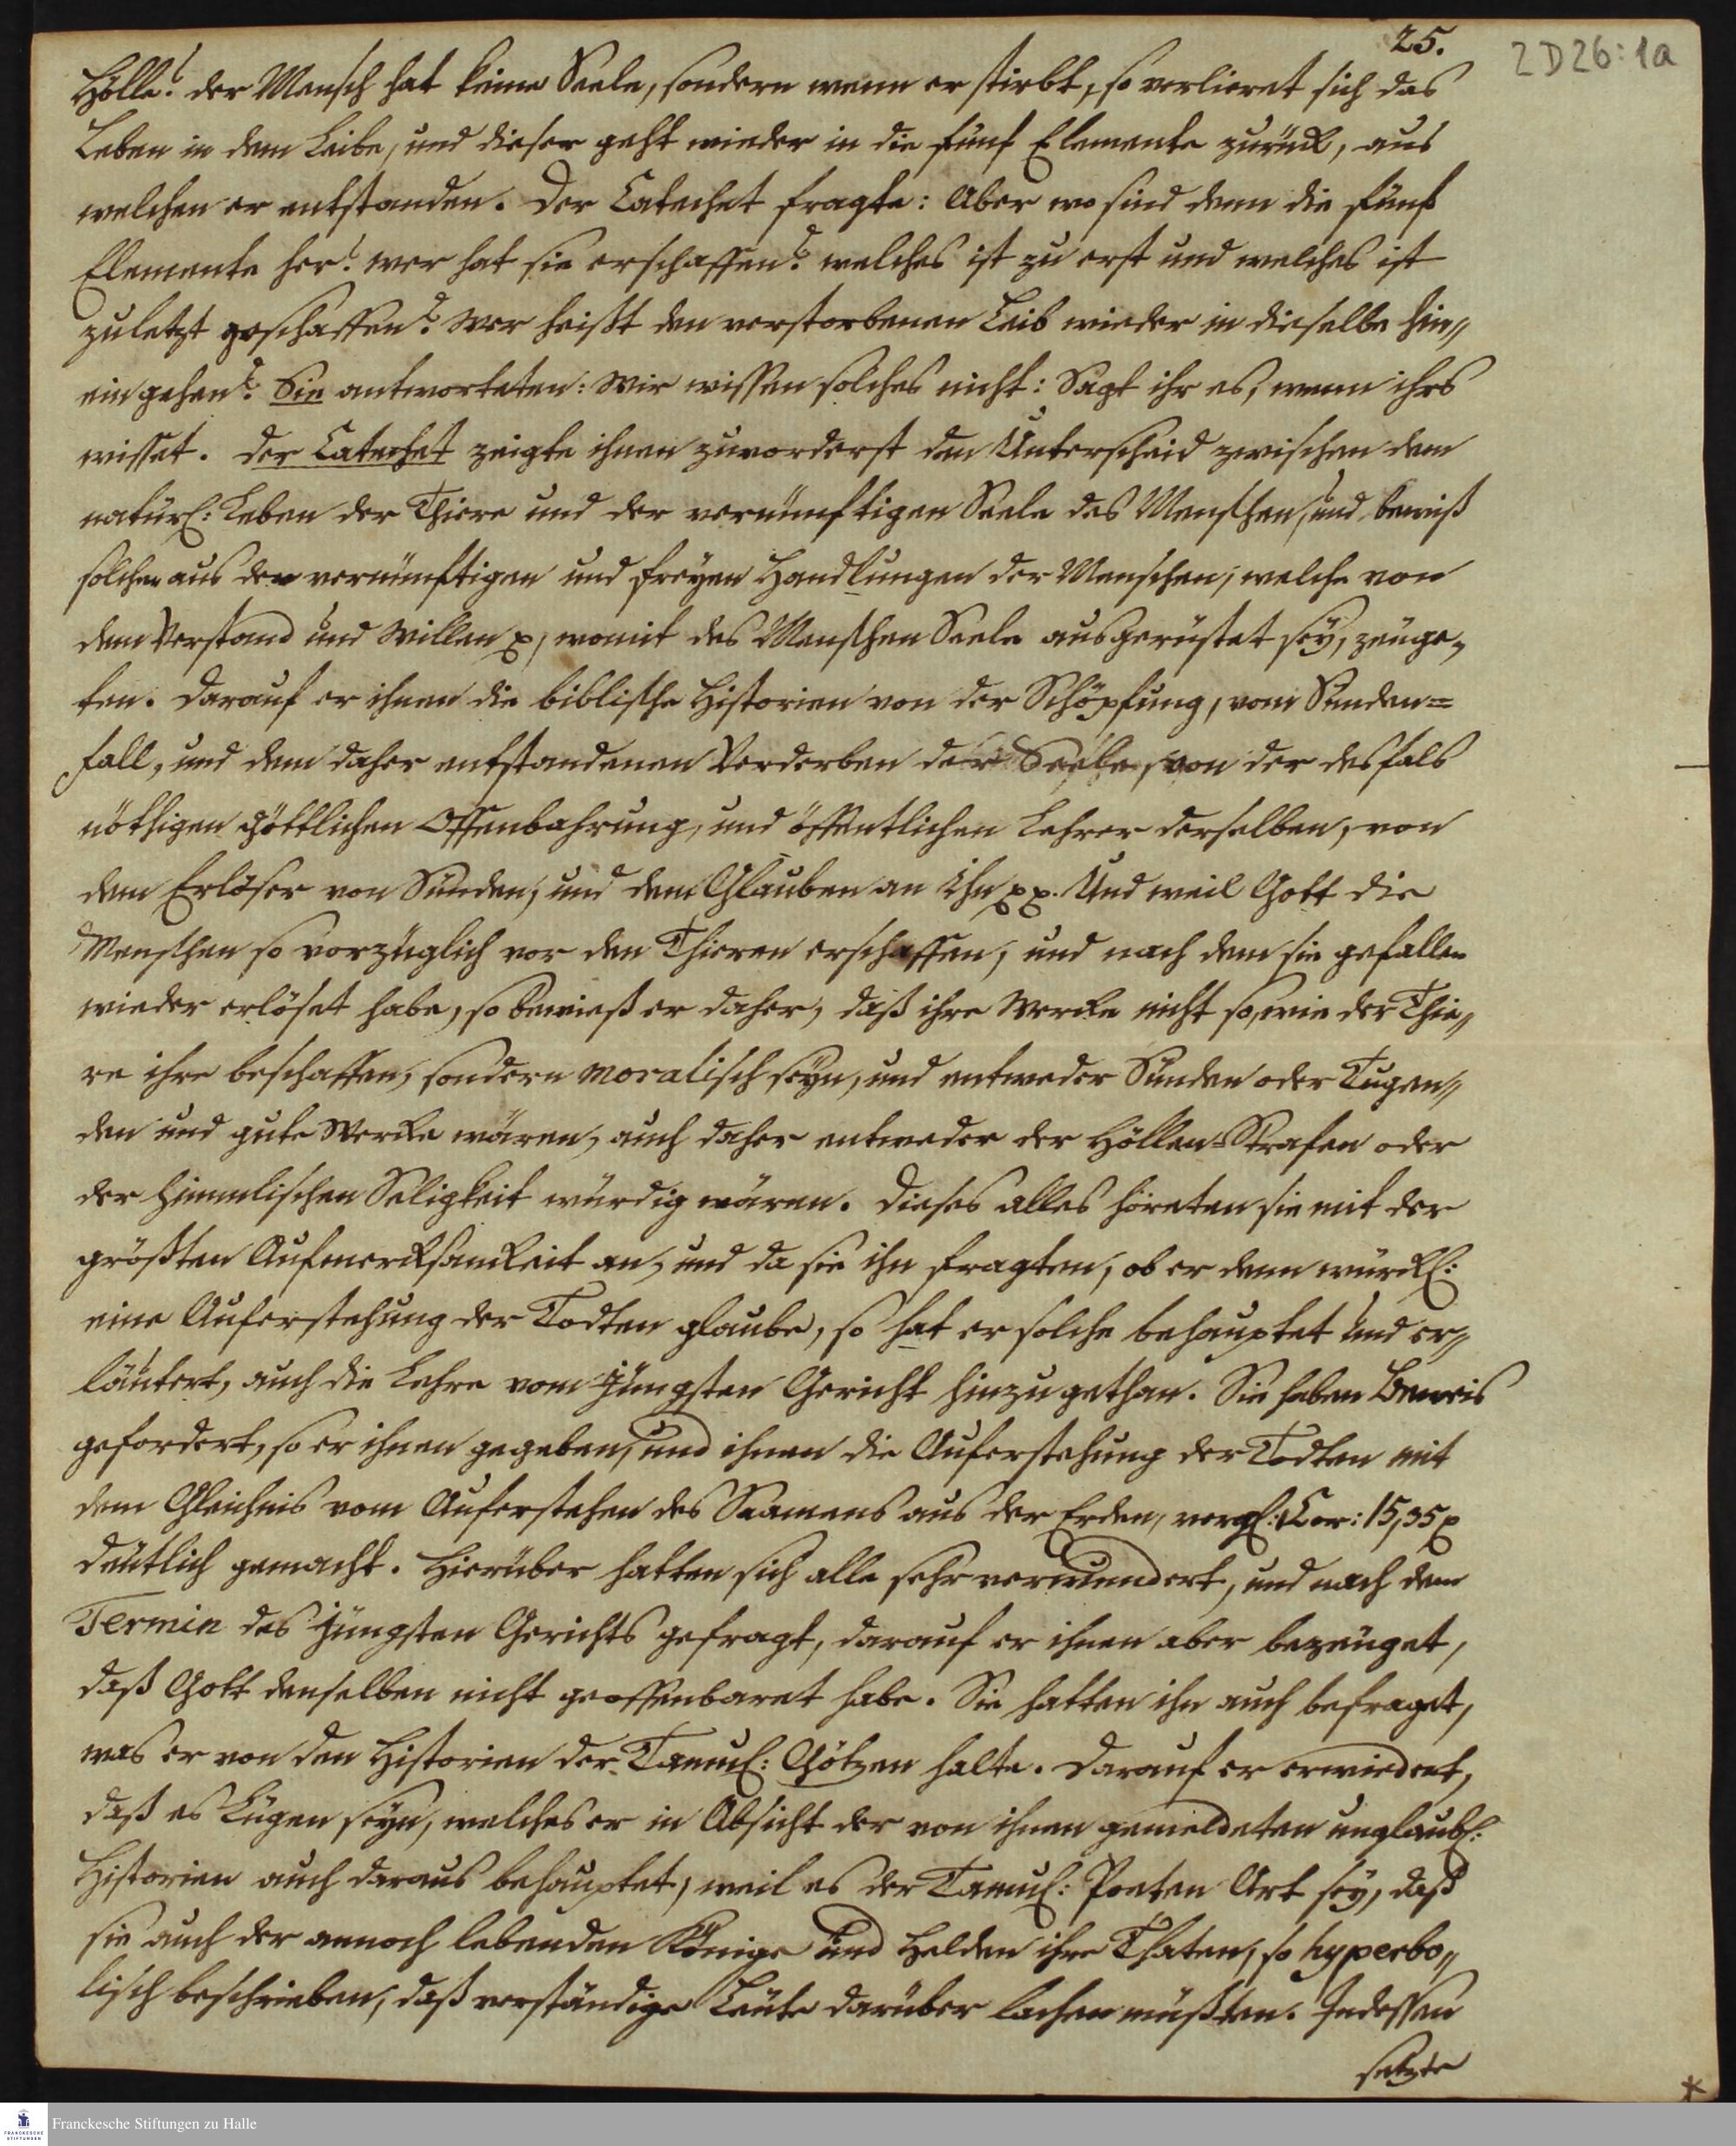 25.
2 D 26:1a
Hölle? der Mensch hat keine Seele, sondern wenn er stirbt, so verlieret sich das
Leben in dem Leibe, und dieser geht wieder in die fünf Elemente zurück, aus
welchen er entstanden. Der Catechet fragte: Aber wo sind denn die fünf
Elemente her? wer hat sie erschaffen? welches ist zu erst und welches ist
zuletzt geschaffen? Wer heißt den verstorbenen Leib wieder in dieselbe hin„
ein gehen? Sie antworteten: Wir wissen solches nicht: Sagt ihr es, wenn ihrs
wisset. Der Catechet zeigte ihnen zuvorderst den Unterscheid zwischen dem
natürl: Leben der Thiere und der vernünftigen Seele des Menschen, und bewiß
solchen aus den vernünftigen und freyen Handlungen der Menschen, welche von
dem Verstand und Willen p, womit des Menschen Seele ausgerüstet sey, zeuge„
ten. Darauf er ihnen die biblische Historien von der Schöpfung, vom Sünden=
fall, und dem daher entstandenen Verderben der Seele, von der desfals
nöthigen göttlichen Offenbahrung, und öffentlichen Lehrer derselben, von
dem Erlöser von Sünden, und dem Glauben an Ihn pp. Und weil Gott die
Menschen so vorzüglich vor den Thieren erschaffen, und nach dem sie gefallen
wieder erlöset habe, so bewieß er daher, daß ihre Wercke nicht so, wie der Thie„
re ihre beschaffen, sondern moralisch seyn, und entweder Sünden oder Tugen„
den und gute Wercke wären, auch daher entweder der Höllen-Strafen oder
der himmlischen Seligkeit würdig wären. Dieses alles höreten sie mit der
größten Aufmercksamkeit an, und da sie ihn fragten, ob er denn würckl:
eine Auferstehung der Todten glaube, so hat er solche behauptet und er„
läutert, auch die Lehre vom jüngsten Gericht hinzu gethan. Sie haben Beweis
gefordert, so er ihnen gegeben, und ihnen die Auferstehung der Todten mit
dem Gleichnis vom Auferstehen des Saamens aus der Erden, vergl: 1 Cor: 15,35 p
deutlich gemacht. Hierüber hatten sich alle sehr verwundert, und nach dem
Termin des jüngsten Gerichts gefragt, darauf er ihnen aber bezeuget,
daß Gott denselben nicht geoffenbaret habe. Sie hatten ihn auch befraget,
was er von den Historien der Tamul: Götzen halte. Darauf er erwiedert,
daß es Lügen seyn, welches er in Absicht der von ihnen gemeldeten unglaubl:
Historien auch daraus behauptet, weil es der Tamul: Poeten Art sey, daß
sie auch der annoch lebenden Könige und Helden ihre Thaten, so hyperbo„
lisch beschrieben, daß verständige Leute darüber lachen müßten. Indessen
setzte
Franckesche Stiftungen zu Halle
FRANCKESCHE
STIFTUNGEN